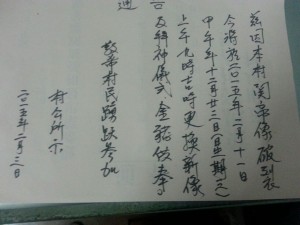 茲因本村關帝像破裂
今將於二〇一五年二月十一日
甲午年十二月廿三日(星期三)
上午九時
時更換新像
及拜神儀式金豬侍奉
敬希村民踴躍參加
村公所示
二〇一五年二月三日